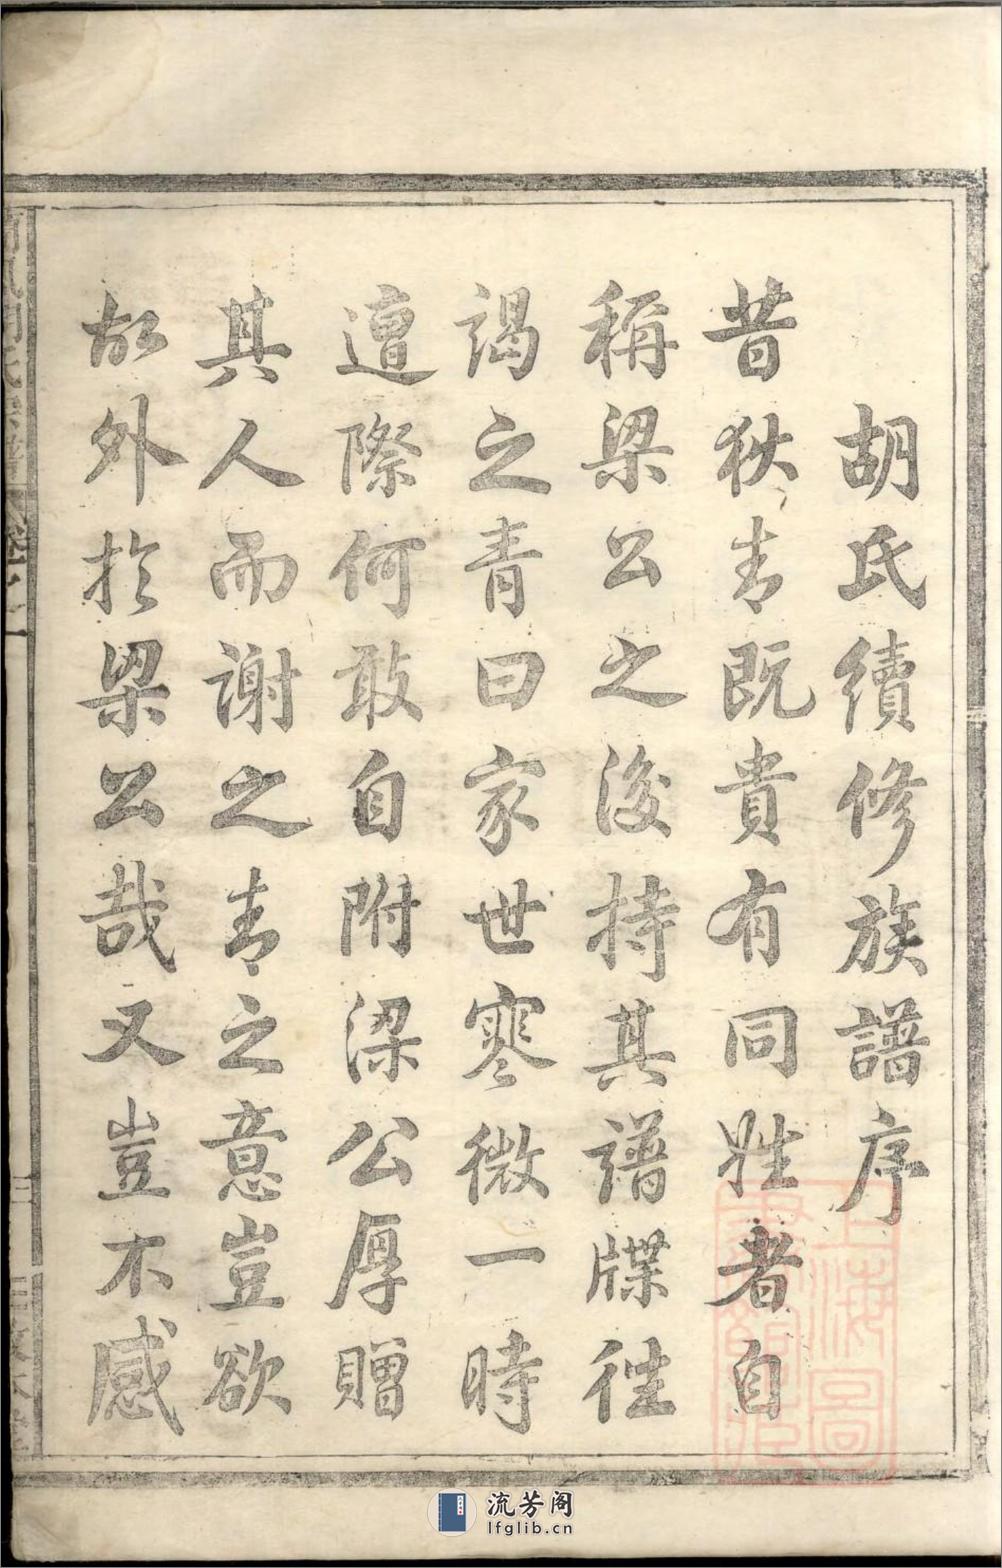 胡氏續修族譜序
昔狄青既貴有同姓者自
稱梁公之後持其譜牒徃
謁之青曰家世寒微一時
遭際何敢自附梁公厚贈
其人而謝之青之意豈欲
故外於梁公哉又豈不感
上海圖
書館藏
流芳阁
lfglib.cn